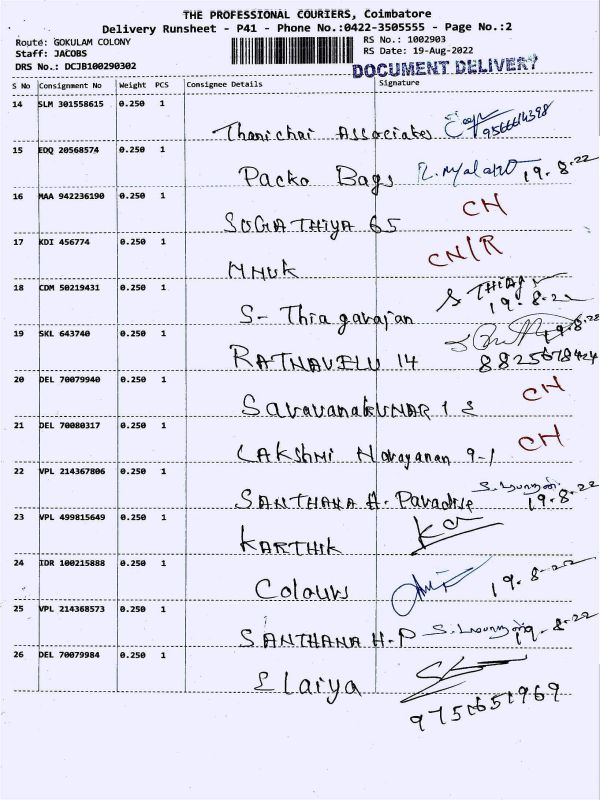 THE PROFESSIONAL COURIERS, Coimbatore
Delivery Runsheet - P41 - Phone No.:0422-3505555 - Page No.:2
Route: GOKULAM COLONY RS No.: 1002903
Staff: JACOBS RS Date: 19-Aug-2022
DRS No.: DCJB100290302 DOCUMENT DELIVERY
S No Consignment No Weight PCS Consignee Details Signature
14 SLM 301558615 0.250 1
Thanichai Associates 9566614398
15 EDQ 20568574 0.250 1
Packo Bags 19.8.22
16 MAA 942236190 0.250 1 CH
SOGATHIYA 65
17 KDI 456774 0.250 1 CN/R
MNUK
18 CDM 50219431 0.250 1 S THIAG
S- Thiagarajan 19.8.22
19 SKL 643740 0.250 1 19.8.22
RATNAVELU 14 8825678424
20 DEL 70079940 0.250 1 CH
SaravanaKUMAR 1 S
21 DEL 70080317 0.250 1 CH
LAKSHMI Narayanan 9-1
22 VPL 214367806 0.250 1
SANTHANA H. Paradise 19.8.22
23 VPL 499815649 0.250 1
KARTHIK
24 IDR 100215888 0.250 1
Colours 19.8.22
25 VPL 214368573 0.250 1
SANTHANA H.P 19-8.22
26 DEL 70079984 0.250 1
Elaiya
9751651969